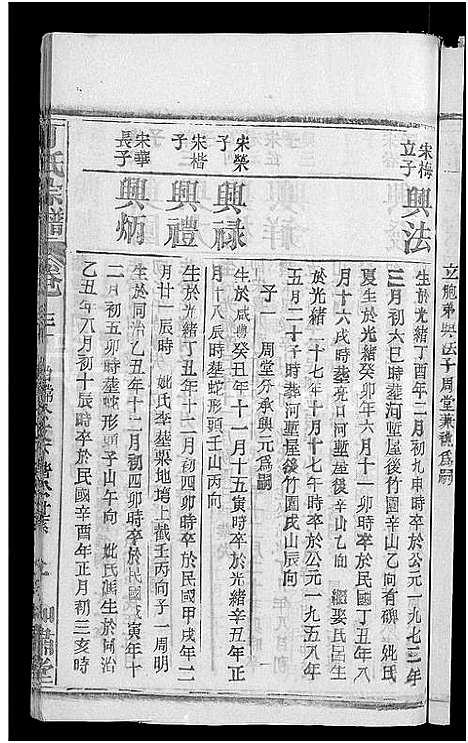 立胞弟興法子周堂兼祧爲嗣
宋梅
立子
興法
生於光緒丁酉年二月初九申時卒於公元一九七二年
三月初六巳時葬河塹屋後竹園辛山乙向有碑 妣氏
夏生於光緒癸卯年六月十一卯時卒於民國丁丑年八
月十六戌時葬
河塹屋後辛山乙向 繼娶氏呂生
於光緒二十七年十月十七午時卒於公元一九五九年
五月二十子時葬河塹屋後竹園戌山辰向
子一 周堂分承興元爲嗣
宋榮
子
興祿
生於咸豐癸丑年十一月十五寅時卒於光緒辛丑年正
月十八辰時葬蛇形頭壬山丙向
宋楷
子
興禮
生於光緒丁丑年十二月初四卯時卒於民國甲戌年二
月廿一辰時 妣氏李葬栗地塆上截壬丙向子一周明
宋華
長子
興炳
生於同治乙丑年十二月初四卯時卒於民國戊寅年十
二月初五卯時葬蛇形頭子山午向 妣氏生於同治
乙丑年八月初十辰時卒於民國辛酉年正月初三亥時
氏宗譜